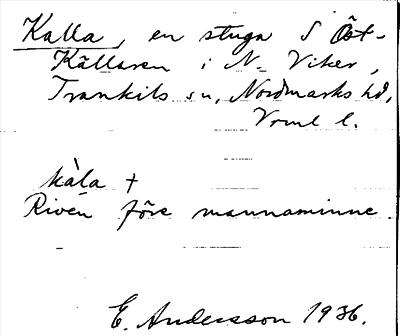 Kalla, en stuga S Öst-
Källaren i N. Viker,
Trankils sn, Nordmarks hd,
Vrml l.
kàla +
Riven före mannaminne.
E. Andersson 1936.